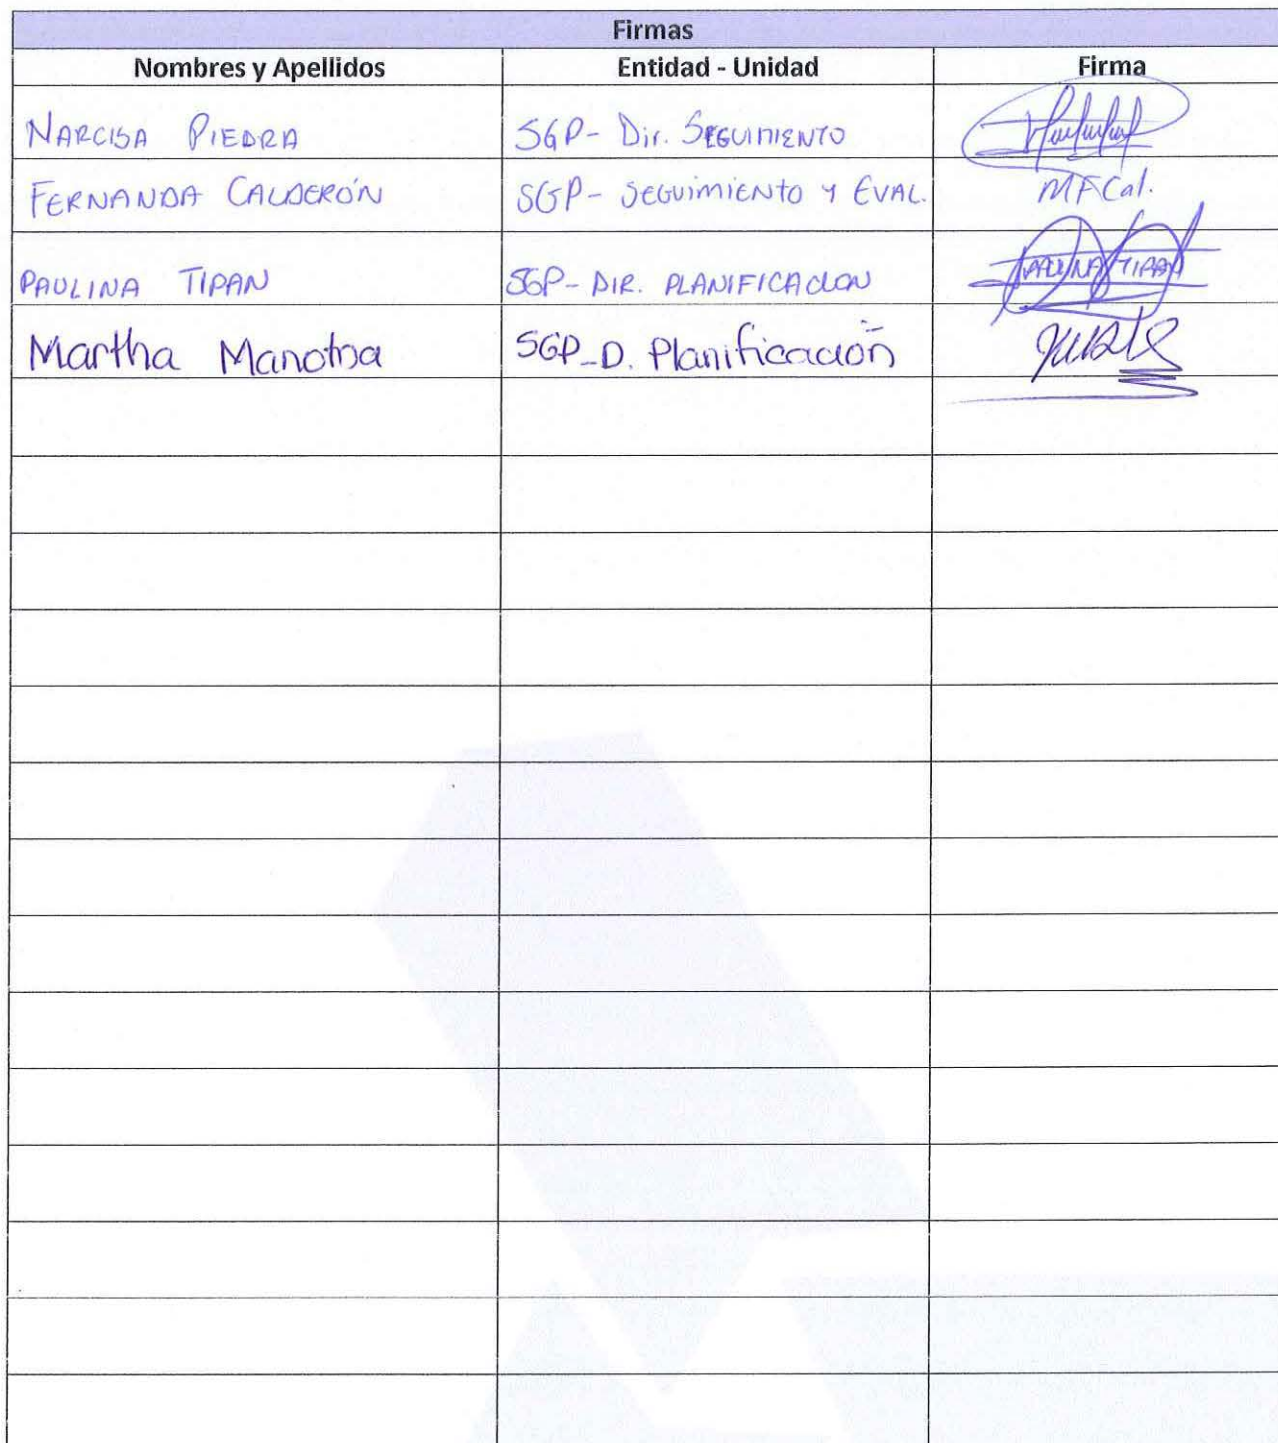 Firmas
Nombres y Apellidos Entidad - Unidad Firma
NARCISA PIEDRA SGP- Dir. SEGUIMIENTO
FERNANDA CALDERÓN SGP- SEGUIMIENTO Y EVAL. MFCal.
PAULINA TIPAN SGP- DIR. PLANIFICACION PAULINA TIPAN
Martha Manotoa SGP_D. Planificación